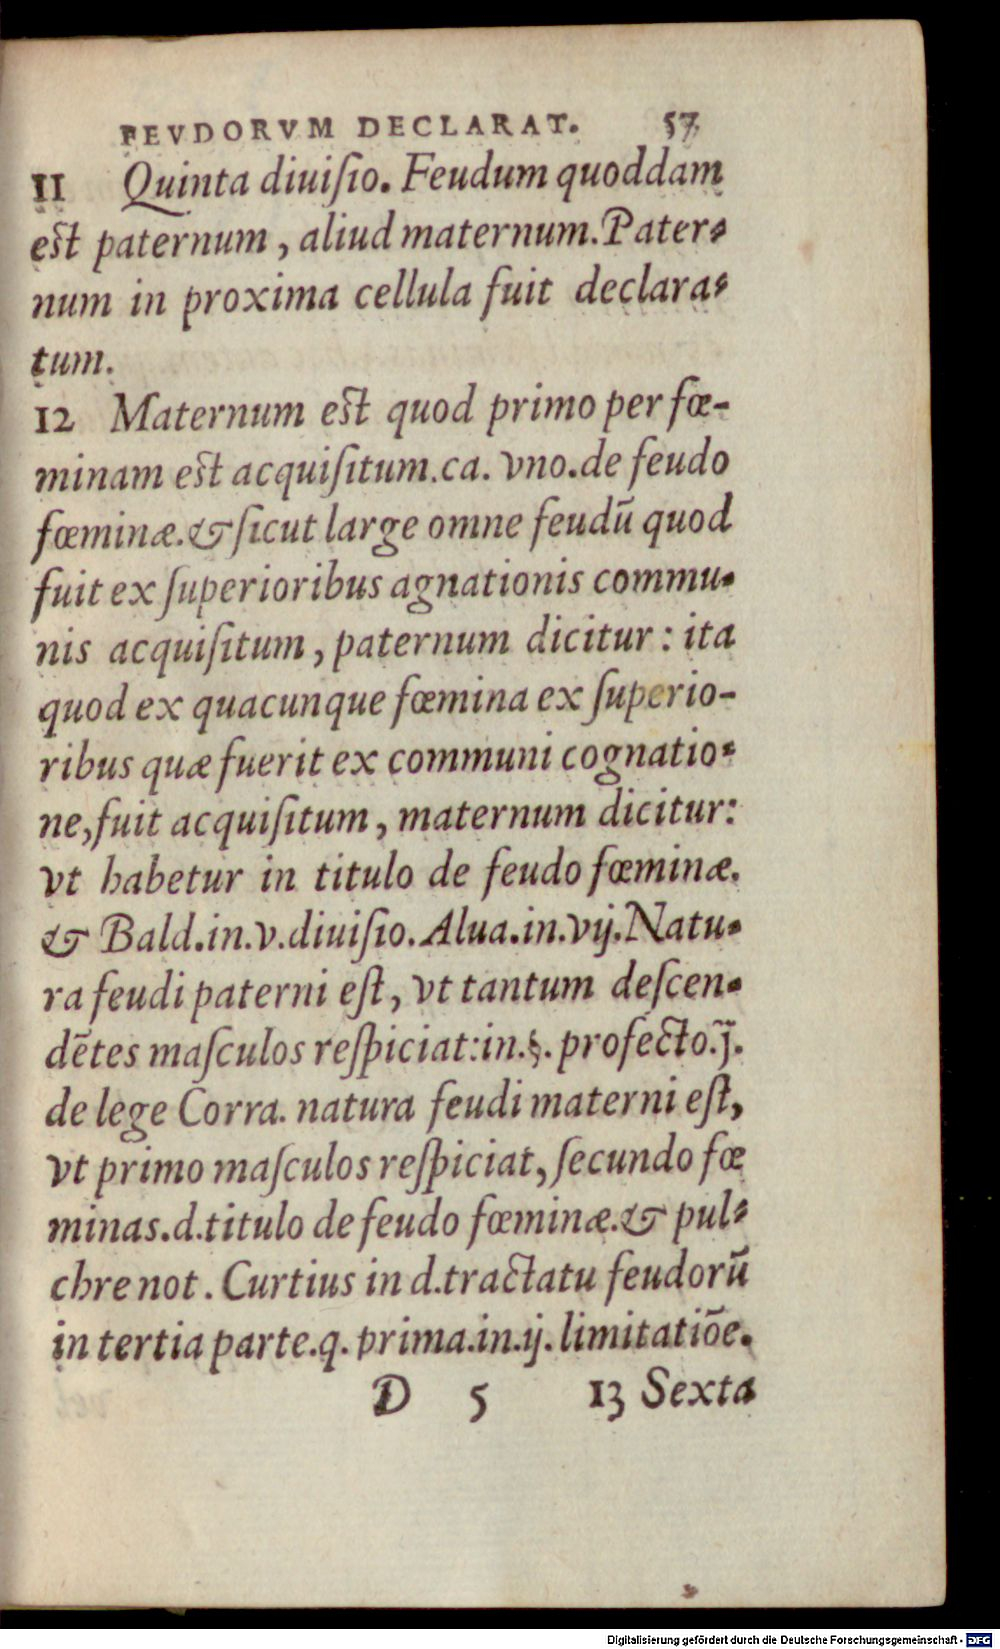 FEVDORVM DECLARAT. 57
11 Quinta diuiſio. Feudum quoddam
est paternum, aliud maternum. Pater-
num in proxima cellula fuit declara-
tum.
12 Maternum est quod primo per fœ-
minam est acquiſitum. ca. vno. de feudo
fœminæ. & ſicut large omne feudū quod
fuit ex ſuperioribus agnationis commu-
nis acquiſitum, paternum dicitur: ita
quod ex quacunque fœmina ex ſuperio-
ribus quæ fuerit ex communi cognatio-
ne, fuit acquiſitum, maternum dicitur:
vt habetur in titulo de feudo fœminæ.
& Bald. in. v. diuiſio. Alua. in. vij. Natu-
ra feudi paterni eſt, vt tantum deſcen-
dētes maſculos reſpiciat: in. §. profecto. j.
de lege Corra. natura feudi materni eſt,
vt primo maſculos reſpiciat, ſecundo fœ
minas. d. titulo de feudo fœminæ. & pul-
chre not. Curtius in d. tractatu feudorū
in tertia parte. q. prima. in. ij. limitatiōe.
D 5 13 Sexta
Digitalisierung gefördert durch die Deutsche Forschungsgemeinschaft - DFG